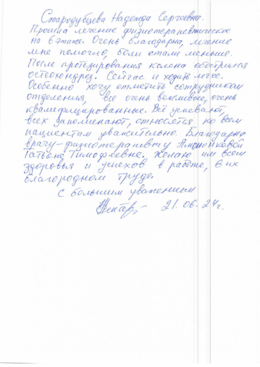 Стародубцева Надежда Сергеевна.
Прошла лечение физиотерапевтическое
на 6 этаже. Очень благодарна, лечение
мне помогло, боли стали меньше.
После протезирования колена обострился
остеохондроз. Сейчас и ходить легче.
Особенно хочу отметить сотрудников
отделения. Все очень вежливые, очень
квалифицированные. Всё успевают,
всех запоминают, относятся ко всем
пациентам уважительно. Благодарю
врачу-физиотерапевту
Татьяне Тимофеевне. Желаю им всем
здоровья и успехов в работе, в их
благородном труде.
С большим уважением
21.06.24г.